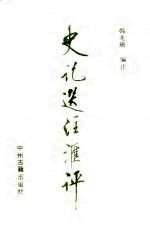 韩兆琦 编注
史记选注汇评
中州古籍出版社